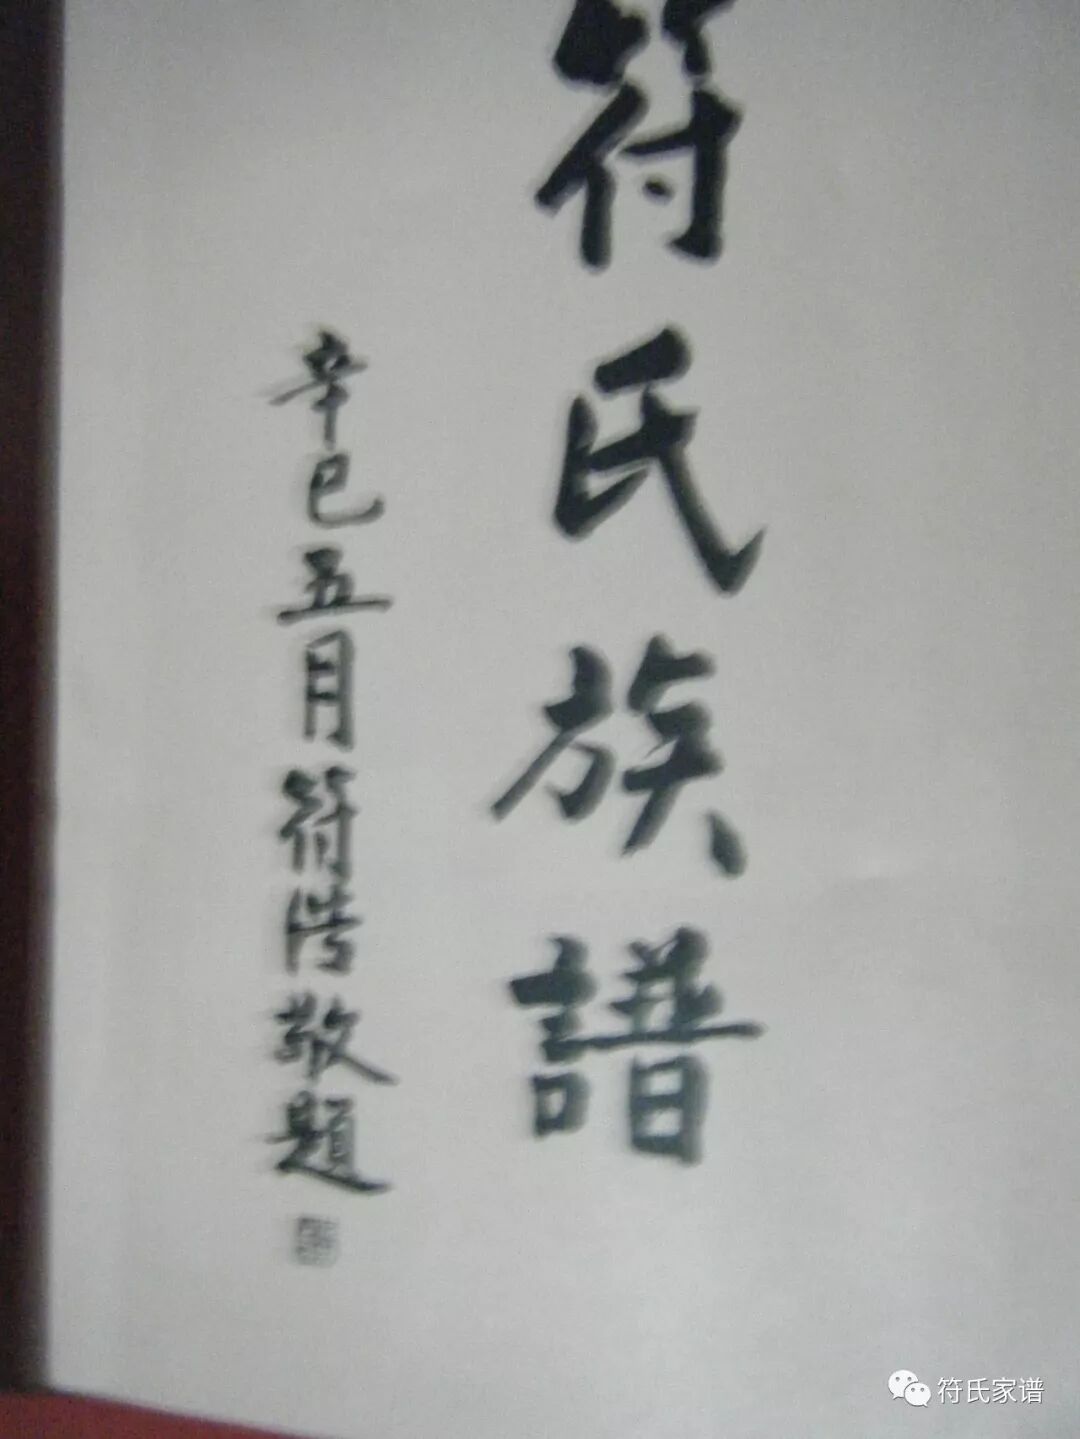 符氏族譜
辛巳五月符浩敬題
符氏家谱